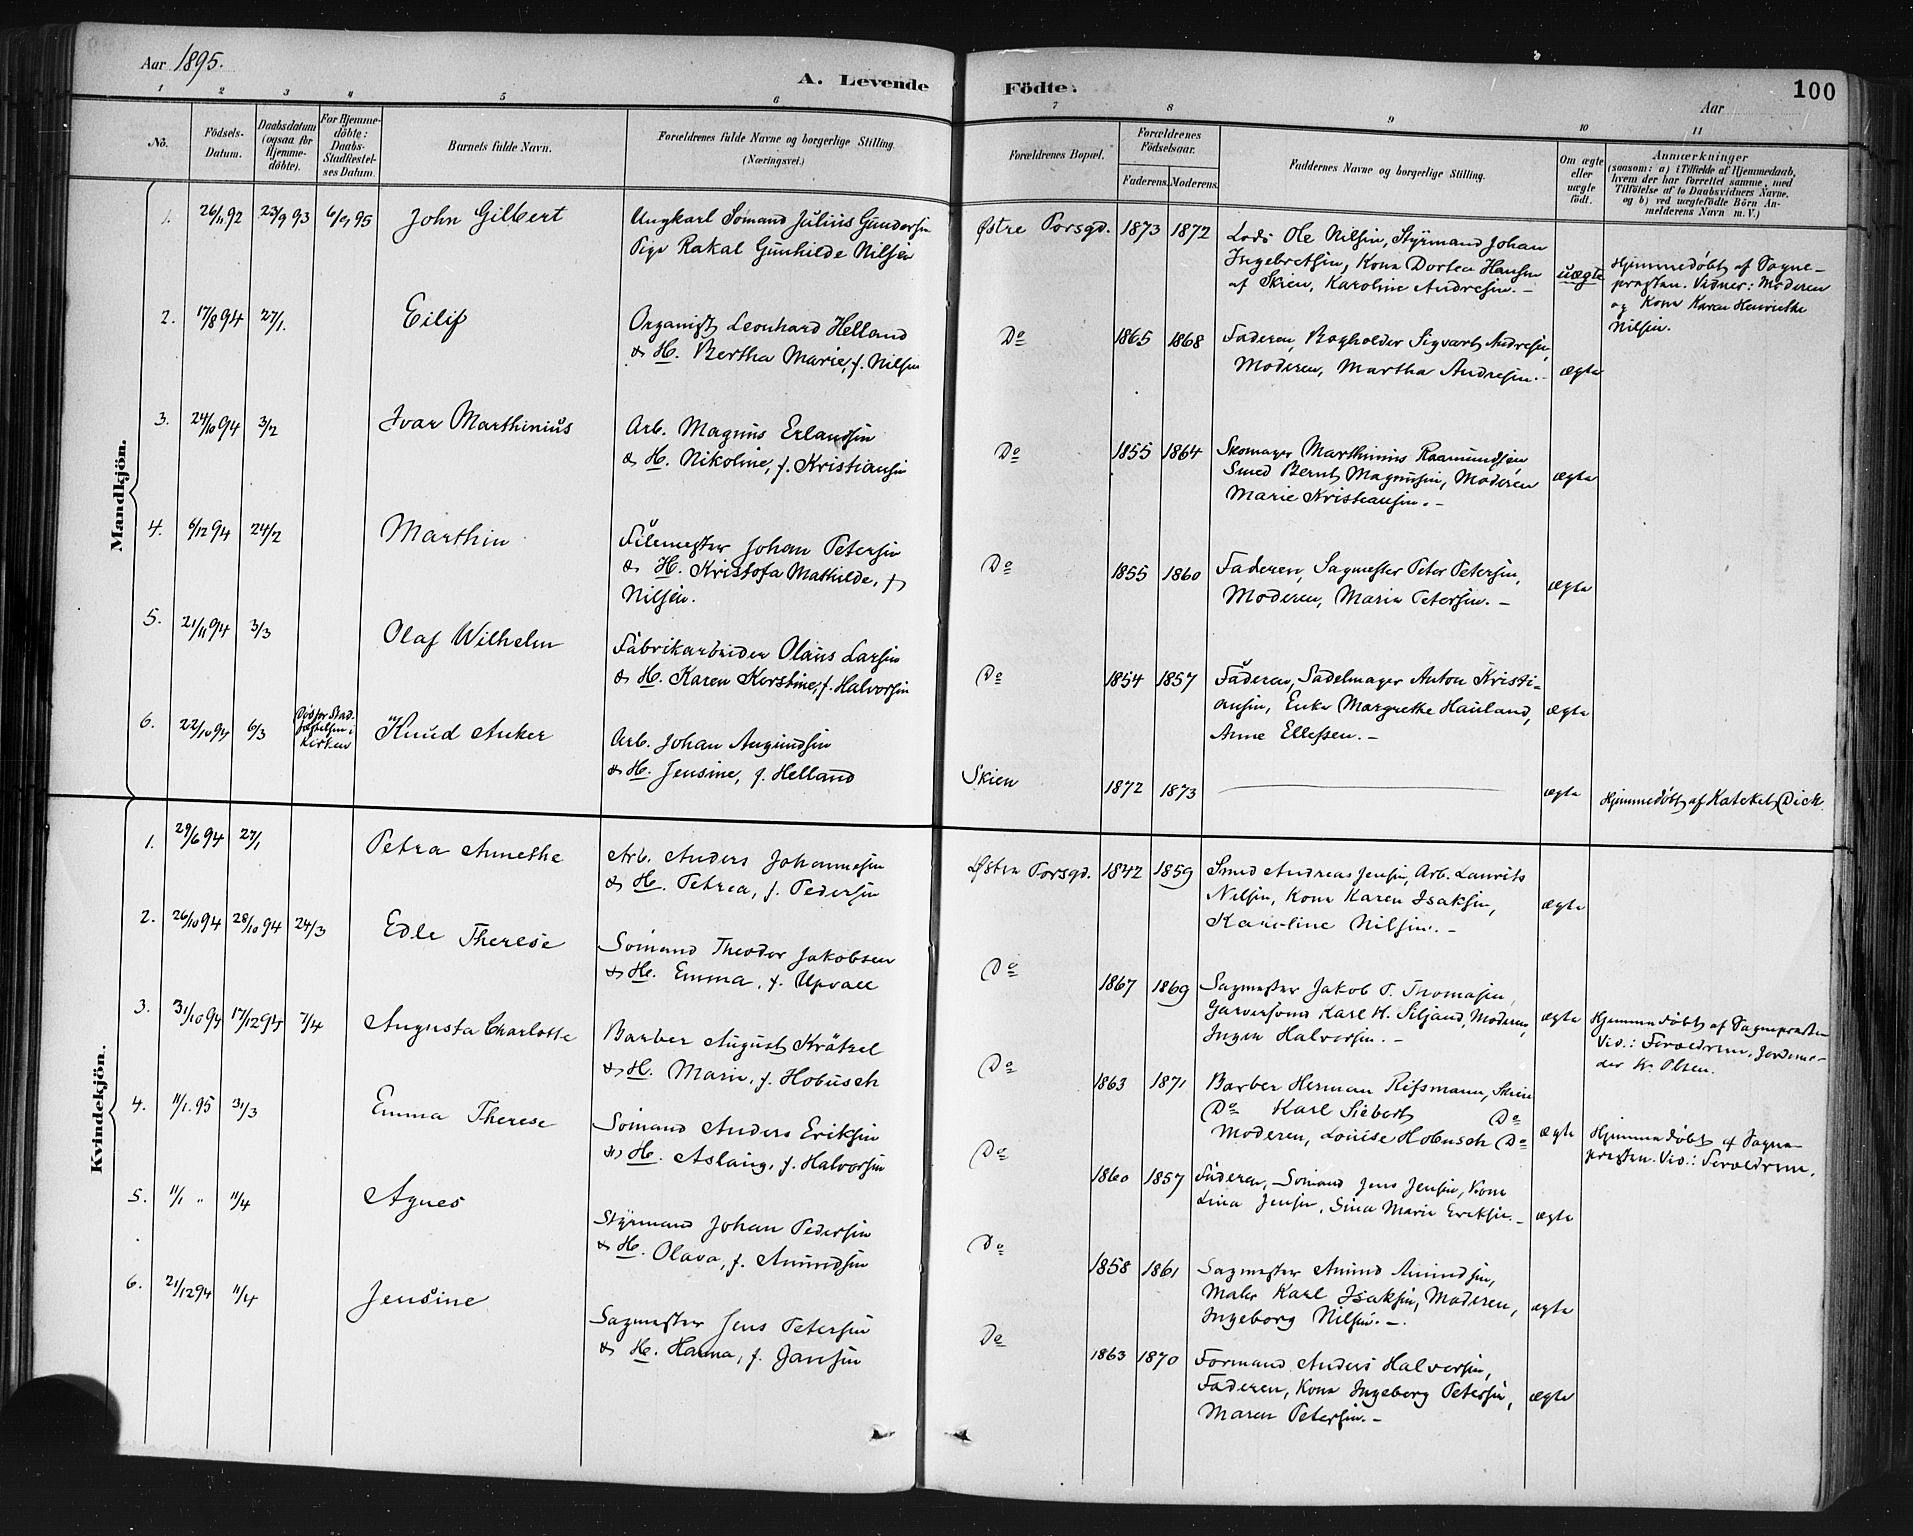 Aar 1895.
A. Levende Födte.
Aar
100
1 2 3 4 5 6 7 8 9 10 11
No.
Födsels-
Datum.
Daabsdatum
(ogsaa for
Hjemme-
döbte).
For Hjemme-
döbte:
Daabs-
Stadfæstel-
ses Datum.
Barnets fulde Navn.
Forældrenes fulde Navne og borgerlige Stilling.
(Næringsvei.)
Forældrenes Bopæl.
Forældrenes
Födselsaar.
Faderens. Moderens.
Faddernes Navne og borgerlige Stilling.
Om ægte
eller
uægte
født.
Anmærkninger
(saasom: a) i Tilfælde af Hjemmedaab,
hvem der har forrettet samme, med
Tilföielse af to Daabsvidners Navne,
og b) ved uægtefödte Börn An-
melderens Navn m. V.)
Mandkjön.
1. 26/11 92 23/9 93 6/1 95 John Gilbert
Ungkarl Sömand Julius Gundersen
Pige Rakal Gunhilde Nilsen
Østre Porsgd. 1873 1872
Lods Ole Nilsen, Styrmand Johan
Ingebretsen, Kone Dortea Hansen
af Skien, Karoline Andresen. –
uægte
Hjemmedøbt af Sogne-
presten. Vidner: Moderen
og Kone Karen Henriette
Nilsen.
2. 17/8 94 27/1. Eilif
Organist Leonhard Helland
& H. Bertha Marie, f. Nilsen
Do 1865 1868
Faderen, Bogholder Sigvart Andresen,
Moderen, Martha Andresen. –
ægte
3. 24/10 94 3/2 Ivar Marthinius
Arb. Magnus Erlandsen
& H. Nikoline, f. Kristiansen
Do 1855 1864
Skomager Marthinius Rasmundsen
Smed Bernt Magnusen, Moderen
Marie Kristiansen. –
ægte
4. 6/12 94 24/2 Marthin
Filemester Johan Petersen
& H. Kristofa Mathilde, f.
Nilsen.
Do 1855 1860
Faderen, Sagmester Peter Petersen,
Moderen, Marie Petersen. –
ægte
5. 21/11 94 3/3 Olaf Wilhelm
Fabrikarbeider Olaus Larsen
& H. Karen Kerstine, f. Halvorsen
Do 1854 1857
Faderen, Sadelmager Anton Kristi-
ansen, Enke Margrethe Hauland,
Anne Ellefsen. –
ægte
6. 22/10 94 6/3
Död før Stad-
fæstelsen i
Kirken
Knud Anker
Arb. Johan Amundsen
& H. Jensine, f. Helland
Skien 1872 1873
ægte
Hjemmedøbt af Kateket Dick.
Kvindekjön.
1. 29/6 94 27/1 Petra Annethe
Arb. Anders Johannesen
& H. Petrea, f. Pedersen
Østre Porsgd. 1842 1859
Smed Andreas Jensen, Arb. Laurits
Nilsen, Kone Karen Isaksen,
Karoline Nilsen. –
ægte
2. 26/10 94 28/10 94 24/3 Edle Therese
Sömand Theodor Jakobsen
& H. Emma, f. Upvall
Do 1867 1869
Sagmester Jakob T. Thomasen,
Garversvend Karl H. Siljand, Moderen,
Inger Halvorsen. –
ægte
Hjemmedøbt af Sognepresten
Vid.: Forældrene, Jordmo-
der W. Olsen.
3. 31/10 94 17/12 94 7/4 Augusta Charlotte
Barber August Krätzel
& H. Marie, f. Hobusch
Do 1863 1871
Barber Herman Rifsmann, Skien
Do Karl Siebert Do
Moderen, Louise Hobusch Do
ægte
Hjemmedøbt af Sogne-
presten. Vid.: Forældrene.
4. 11/1. 95 31/3 Emma Therese
Sömand Anders Eriksen
& H. Aslaug, f. Halvorsen
Do 1860 1857
Faderen, Sömand Jens Jensen, Kone
Lina Jensen, Sina Marie Eriksen. –
ægte
5. 11/1 " 11/4 Agnes
Styrmand Johan Pedersen
& H. Olava, f. Amundsen
Do 1858 1861
Sagmester Amund Amundsen,
Maler Karl Isaksen, Moderen,
Ingeborg Nilsen. –.
ægte
6. 21/12 94 11/4 Jensine
Sagmester Jens Petersen
& H. Hanna, f. Jansen
Do 1863 1870
Formand Anders Halvorsen,
Faderen, Kone Ingeborg Petersen,
Maren Petersen. –
ægte